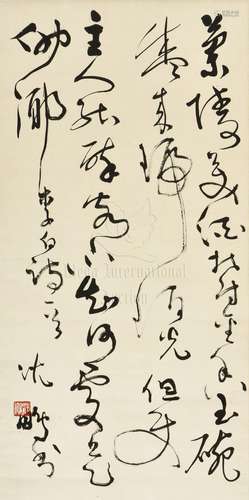 蘭陵美酒鬱金香玉碗
盛來琥珀光但使
主人能醉客不知何處是
他鄉 李白詩一首
沈鵬書
China International
Auction